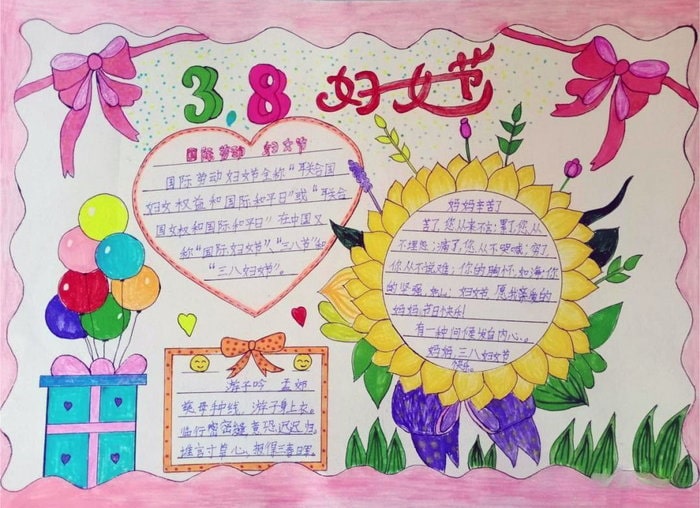 3.8 妇女节
国际劳动 妇女节
国际劳动妇女节全称“联合国
妇女权益和国际和平日”或“联合
国女权和国际和平日”在中国又
称“国际妇女节”、“三八节”和
“三八妇女节”。
妈妈辛苦了
苦了,您从来不言;累了,您从
不埋怨;痛了,您从不哭喊;穷了
你从不说难;你的胸怀,如海;您
的坚强,如山;妇女节,愿我亲爱的
妈妈,节日快乐!
有一种问候发自内心…。
妈妈,三八妇女节
快乐。
游子吟 孟郊
慈母 线、游子身上衣。
临行密密缝,意恐迟迟归。
谁言寸草心、报得三春晖。